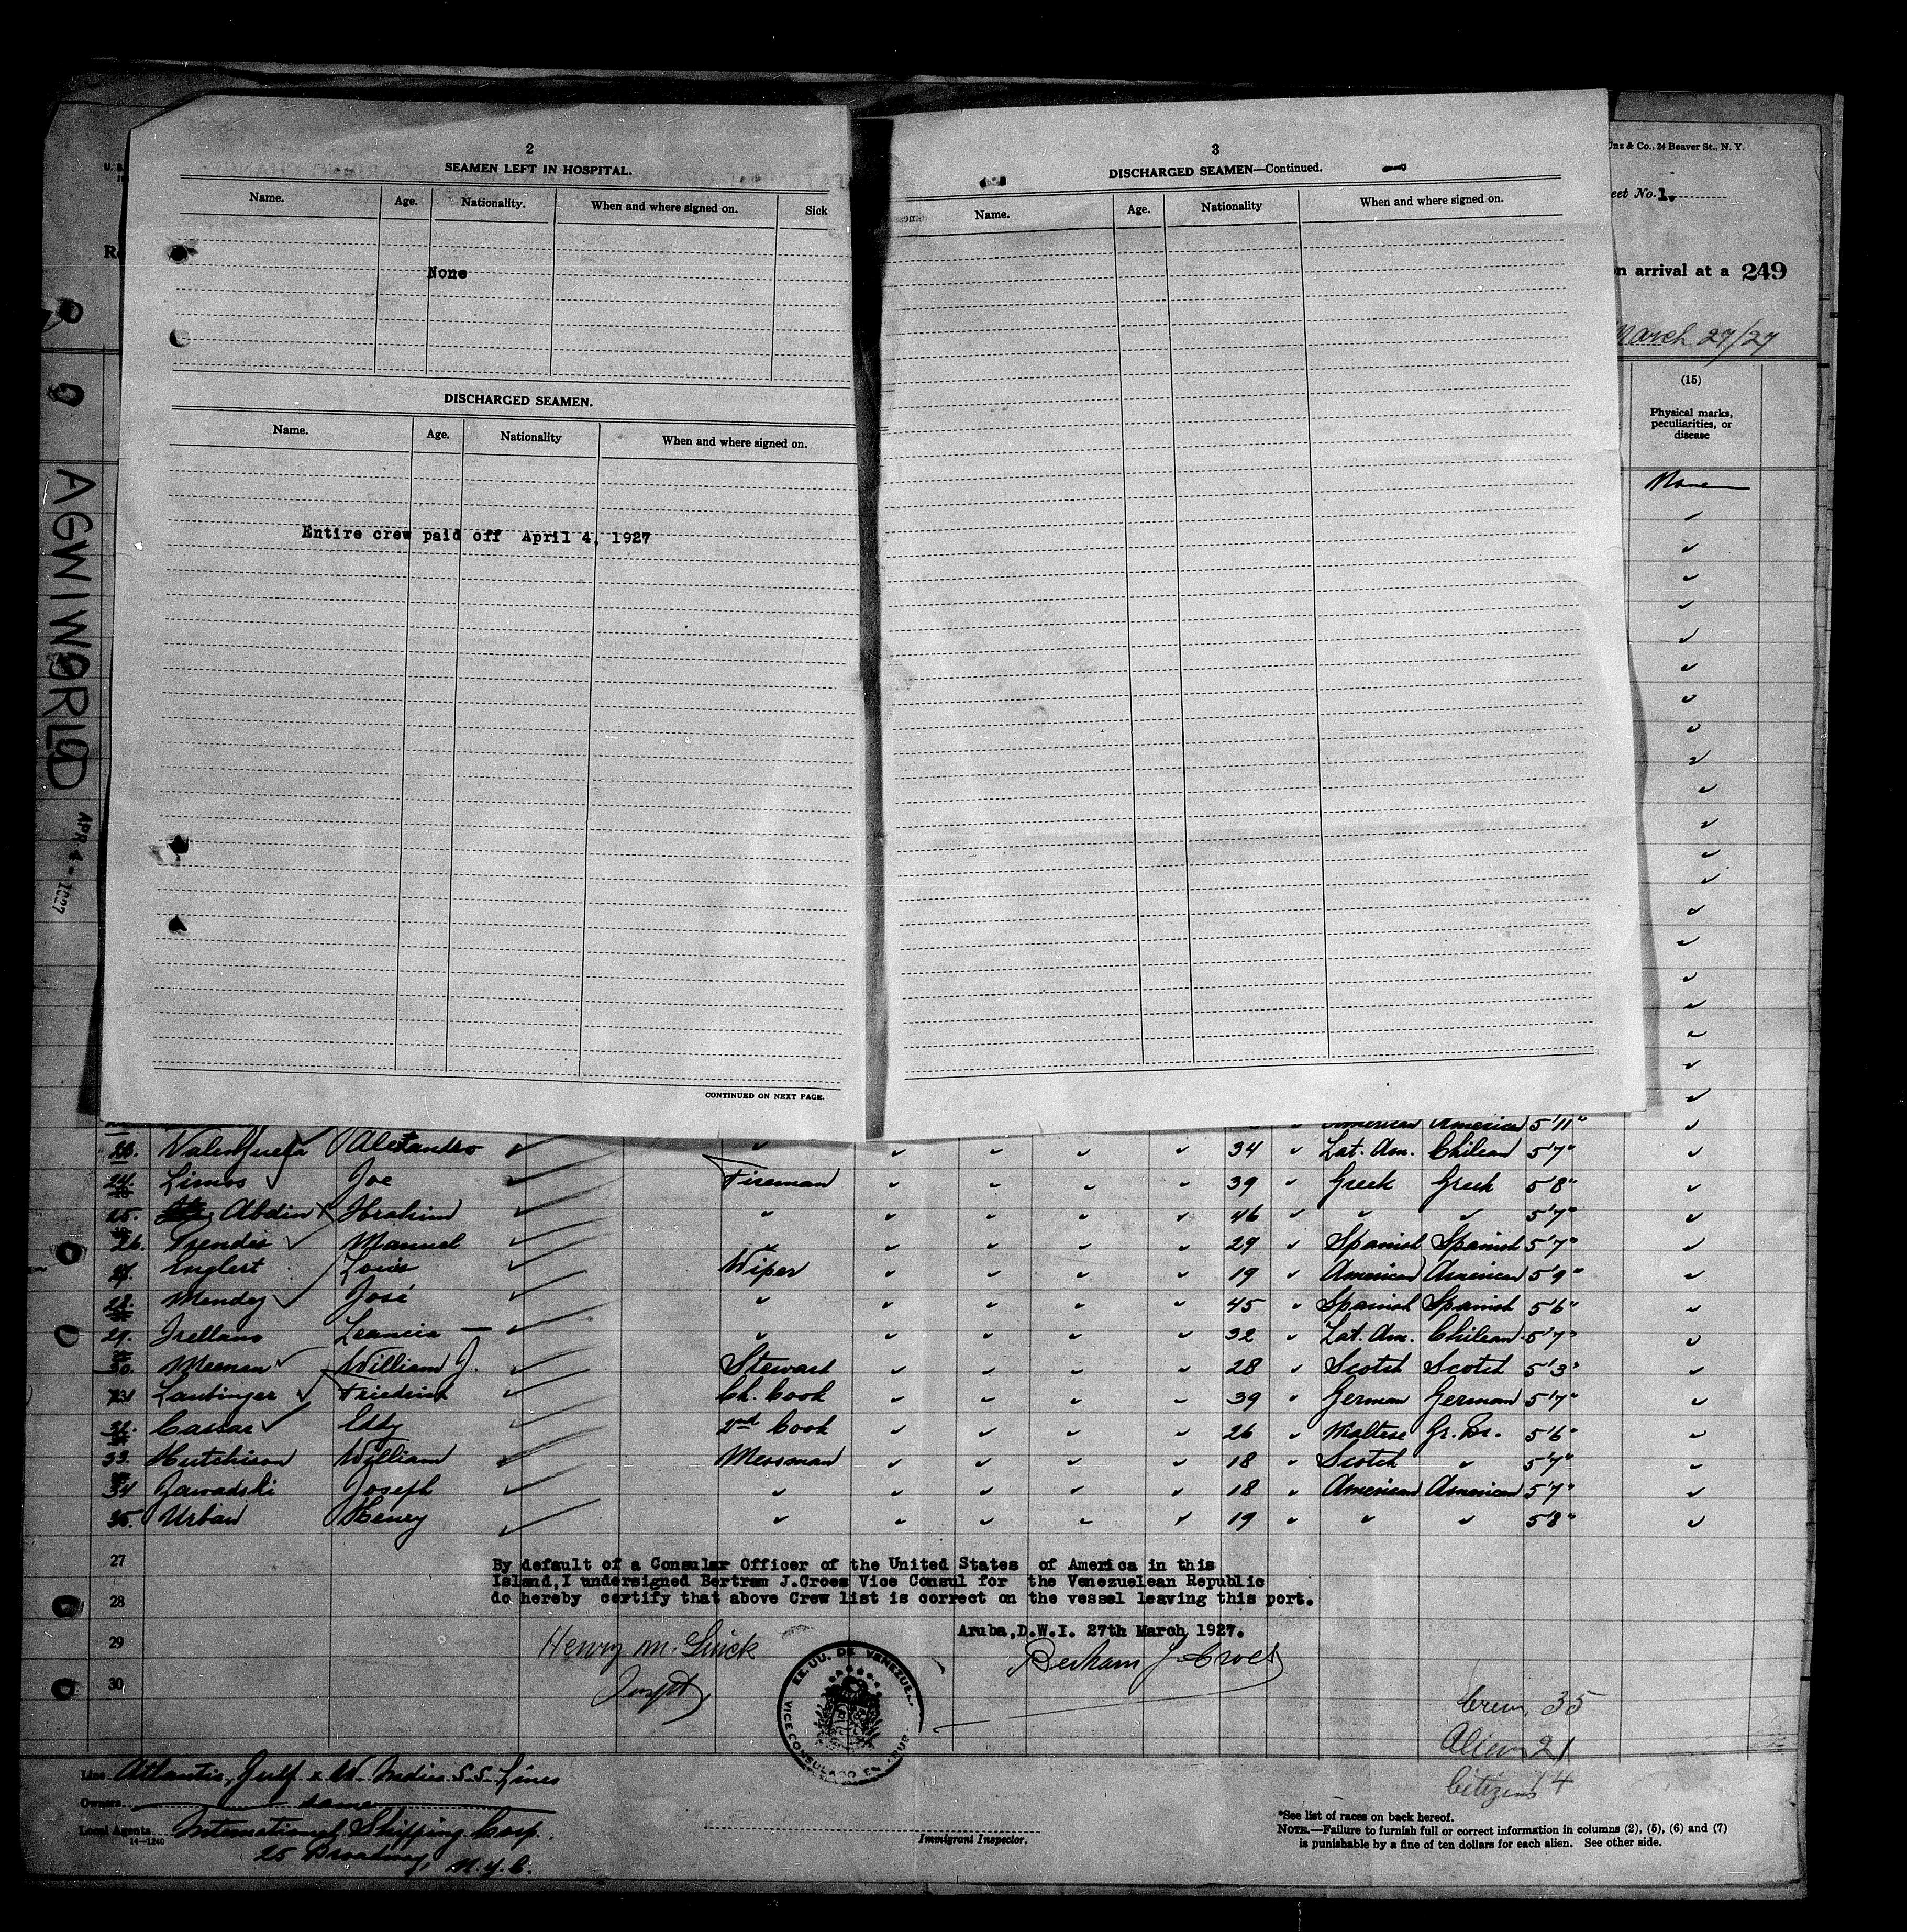 2
SEAMEN LEFT IN HOSPITAL.
Name. Age. Nationality. When and where signed on. Sick
None
DISCHARGED SEAMEN.
Name. Age. Nationality When and where signed on.
Entire crew paid off April 4, 1927
CONTINUED ON NEXT PAGE.
3
DISCHARGED SEAMEN—Continued.
Name. Age. Nationality When and where signed on.
& Co., 24 Beaver St., N. Y.
eet No. 1.
n arrival at a 249
March 27/27
(15)
Physical marks,
peculiarities, or
disease
None
AGWIWORLD
APR 4 - 1927
American America 5'11"
23. Alexandro 34 Lat. Am. Chilean 5'7"
24. Limos Joe Fireman 39 Greek Greek 5'8"
25. Abdin Ibrahim 46 5'7"
26. Manuel 29 Spanish Spanish 5'7"
Englert Louis Wiper 19 American American 5'9"
28. Mendez José 45 Spanish Spanish 5'6"
29. 32 Lat. Am. Chilean 5'7"
30. Meenan William J. Steward 28 Scotch Scotch 5'3"
31 Laubinger Friedrich Ch. Cook 39 German German 5'7"
32. Eddy 2nd Cook 26 Maltese Gr. Br. 5'6"
33. Hutchison William Messman 18 Scotch 5'7"
34 Zawadski Joseph 18 American American 5'7"
35. Urban Henry 19 5'8"
27
By default of a Consular Officer of the United States of America in this
Island, I undersigned Bertram J.Croes Vice Consul for the Venezuelean Republic
28
do hereby certify that above Crew list is correct on the vessel leaving this port.
Aruba,D.W.I. 27th March 1927.
29
Henry M.
Bertram J. Croes
30
EE. UU. DE VENEZUEL
VICE CONSULADO EN
Crew 35
Aliens 21
Citizens 14
Line Atlantic, Gulf & W. Indies S.S. Lines
Owners same
Local Agents International Shipping Corp.
14—1240
25 Broadway, N.Y.C.
Immigrant Inspector.
*See list of races on back hereof.
NOTE.—Failure to furnish full or correct information in columns (2), (5), (6) and (7)
is punishable by a fine of ten dollars for each alien. See other side.